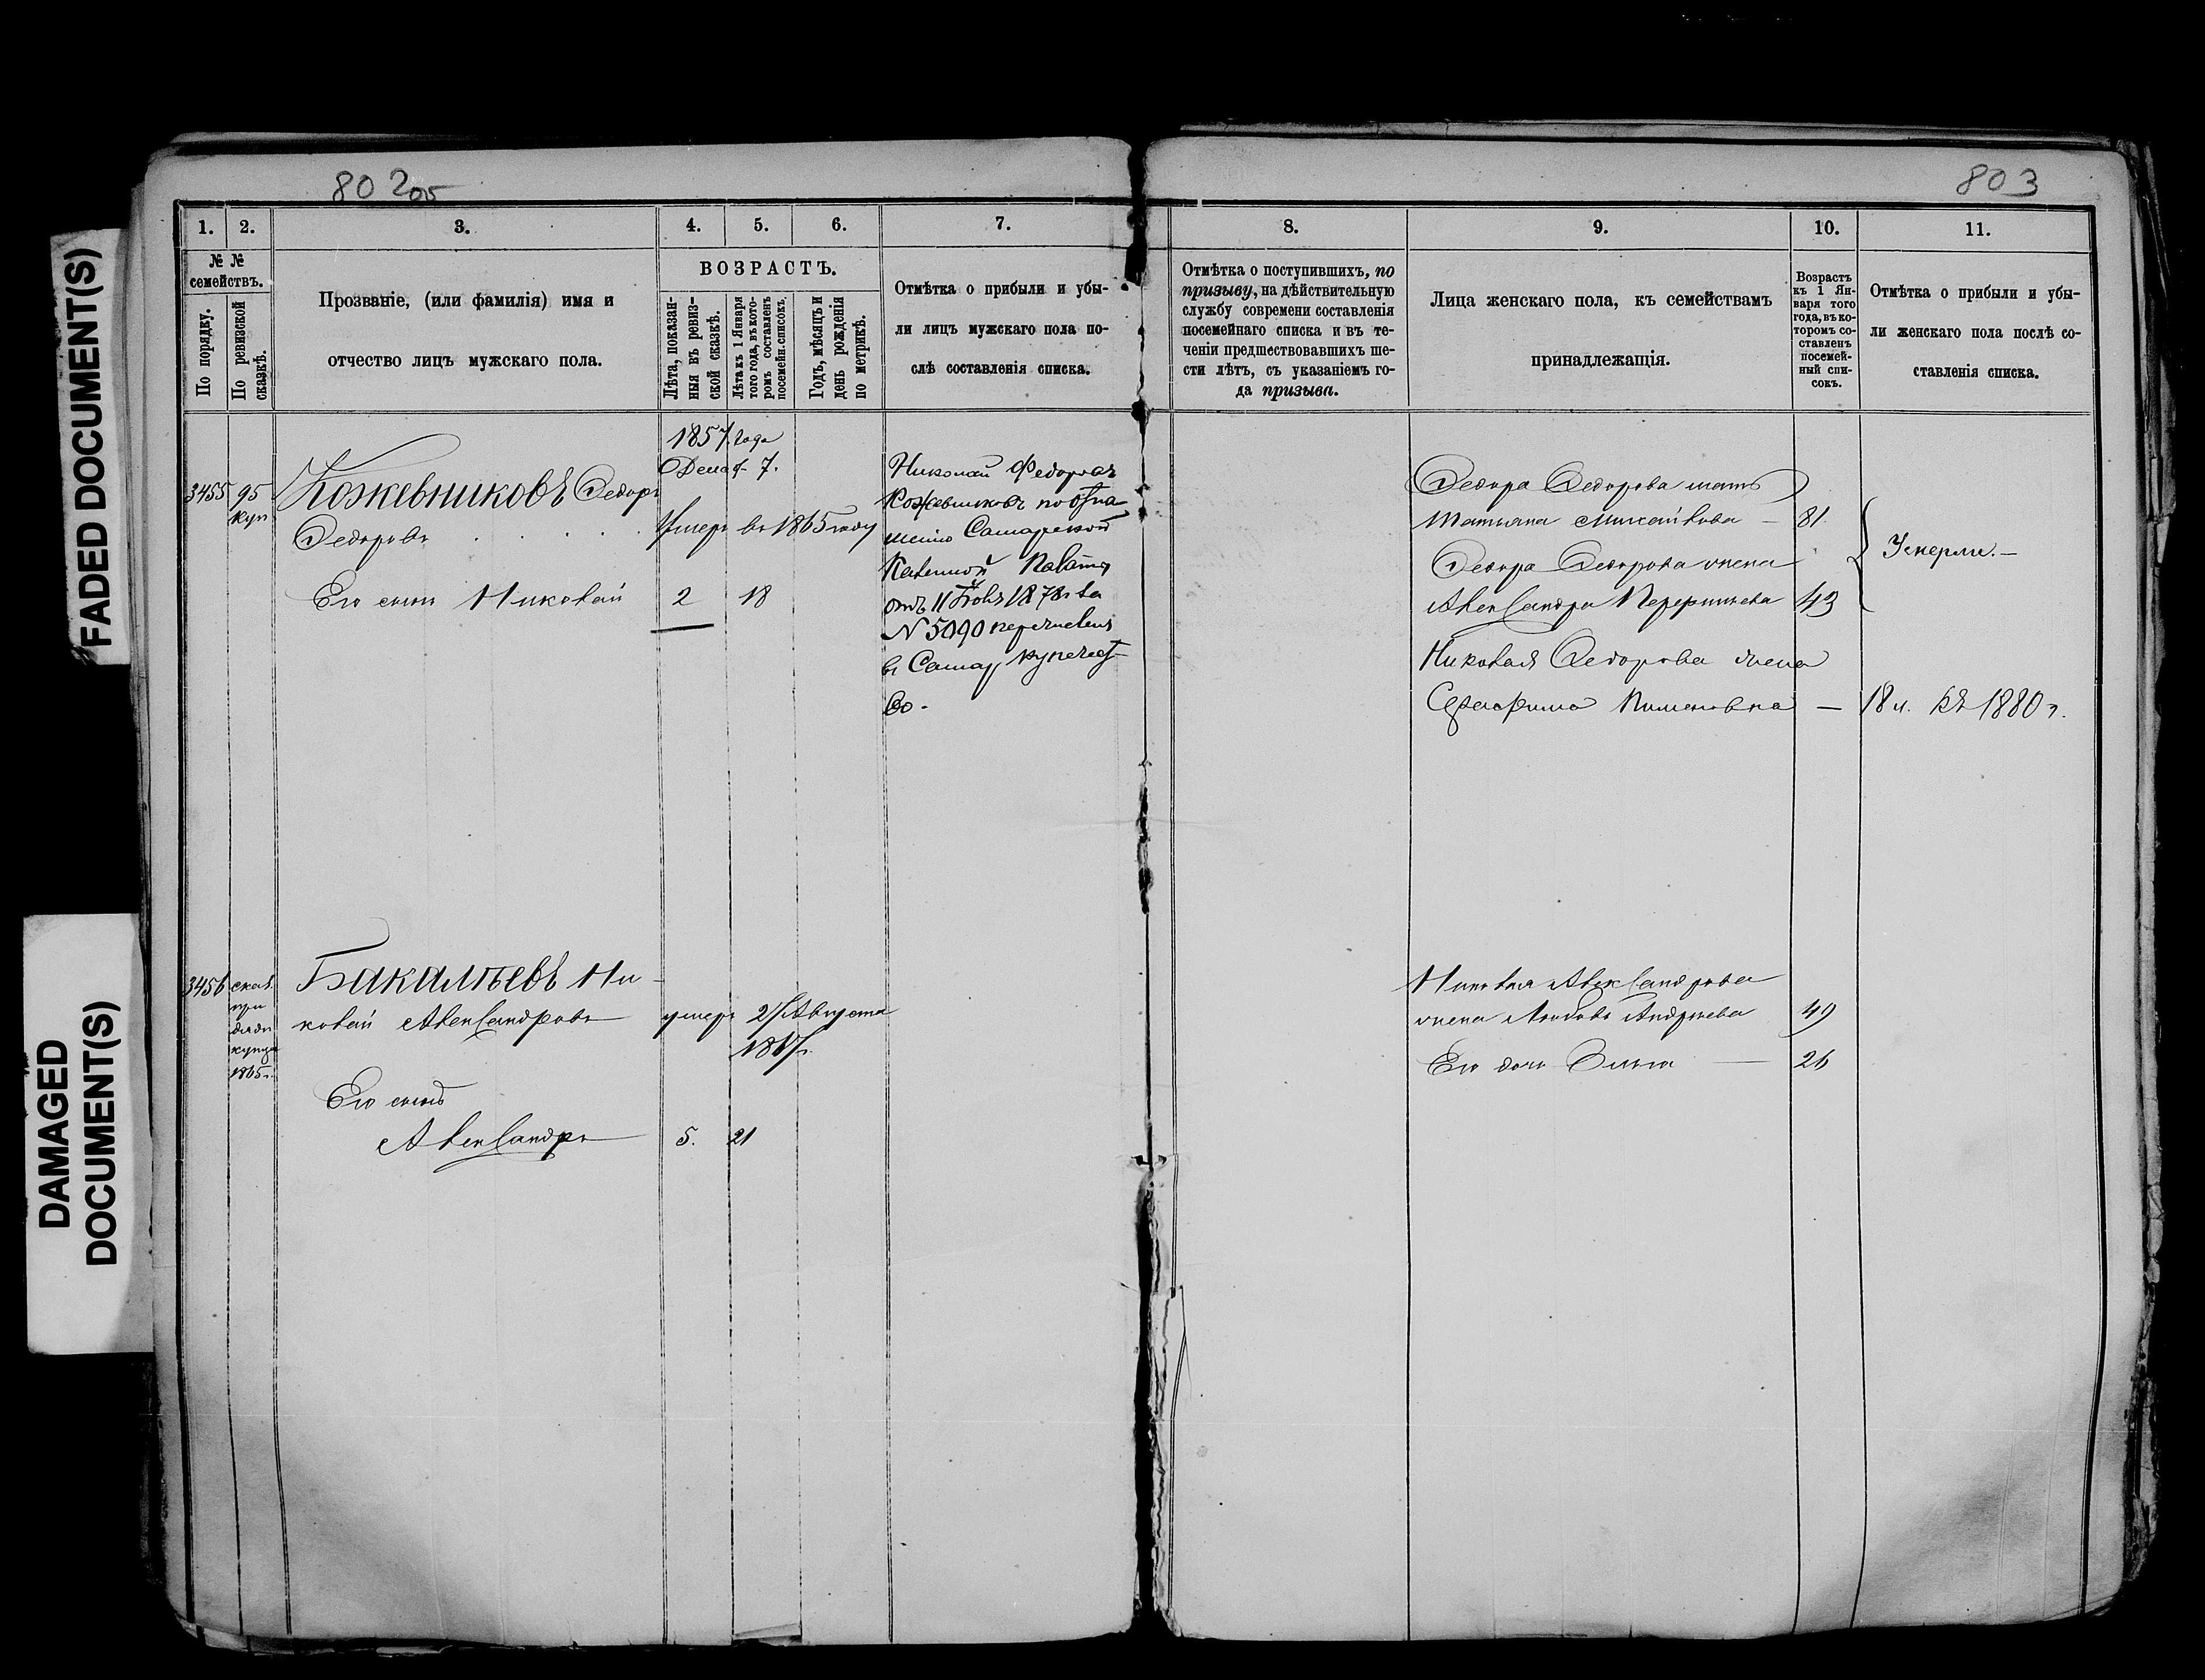 FADED DOCUMENT(S)
DAMAGED
DOCUMENT(S)
802 об
803
1. 2. 3. 4. 5. 6. 7.
№ №
семействъ.
По порядку.
По ревизской
сказкѣ.
Прозваніе, (или фамилія) имя и
отчество лицъ мужскаго пола.
ВОЗРАСТЪ.
Лѣта, показан-
ныя въ ревиз-
ской сказкѣ.
Лѣта къ 1 Января
того года, въ кото-
ромъ составленъ
посемейн. списокъ.
Годъ, мѣсяцъ и
день рожденія
по метрикѣ.
Отмѣтка о прибыли и убы-
ли лицъ мужскаго пола по-
слѣ составленія списка.
8. 9. 10. 11.
Отмѣтка о поступившихъ, по
призыву, на дѣйствительную
службу современи составленія
посемейнаго списка и въ те-
ченіи предшествовавшихъ ше-
сти лѣтъ, съ указаніемъ го-
да призыва.
Лица женскаго пола, къ семействамъ
принадлежащія.
Возрастъ
къ 1 Ян-
варя того
года, въ ко-
торомъ со-
ставленъ
посемей-
ный спи-
сокъ.
Отмѣтка о прибыли и убы-
ли женскаго пола послѣ со-
ставленія списка.
1857 года
7.
3455 95 Кожевниковъ Федоръ
куп.
Федоровъ умеръ въ 1865 году
Его сынъ Николай 2 18
Николай Федоровъ
Кожевниковъ по отно
шенію Самарской
Казенной Палаты
отъ 11 1878 г за
N 5090 перечисленъ
въ Самар купечест
во -
Федора Федорова мать
Татьяна Михайлова — 81.
Федора Федорова жена
Александра 43
Умерли. —
Николая Федорова жена
Серафима Пименовна — 18 л. къ 1880 г.
3456 сказ.
при
дядѣ
купца
1865 г.
Бакалѣевъ Ни-
колай Александровъ умеръ 21 Августа
Его сынъ
Александръ 5. 21
Николая Александрова
жена Любовь Андреева 49
Его дочь — 26